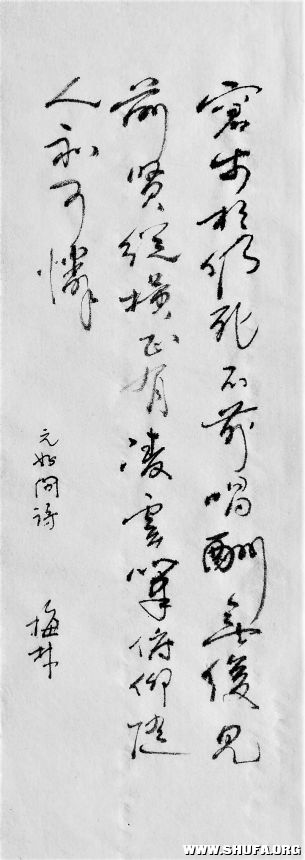 窘步相仍死不前唱酬無復見
前贤縱橫正有凌雲筆俯仰隨
人亦可憐
元好問詩
梅林
WWW.SHUFA.ORG